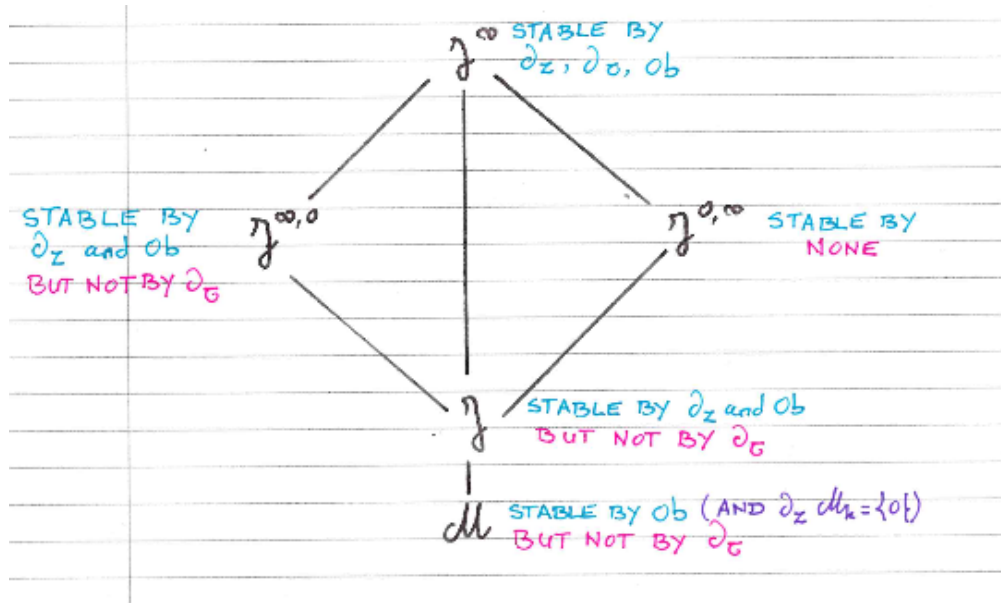 𝒥^∞ STABLE BY
∂_z, ∂_τ, Ob
STABLE BY
∂_z and Ob
BUT NOT BY ∂_τ
𝒥^{∞,0}
𝒥^{0,∞} STABLE BY
NONE
𝒥 STABLE BY ∂_z and Ob
BUT NOT BY ∂_τ
ℳ STABLE BY Ob (AND ∂_z ℳ_k = {0})
BUT NOT BY ∂_τ